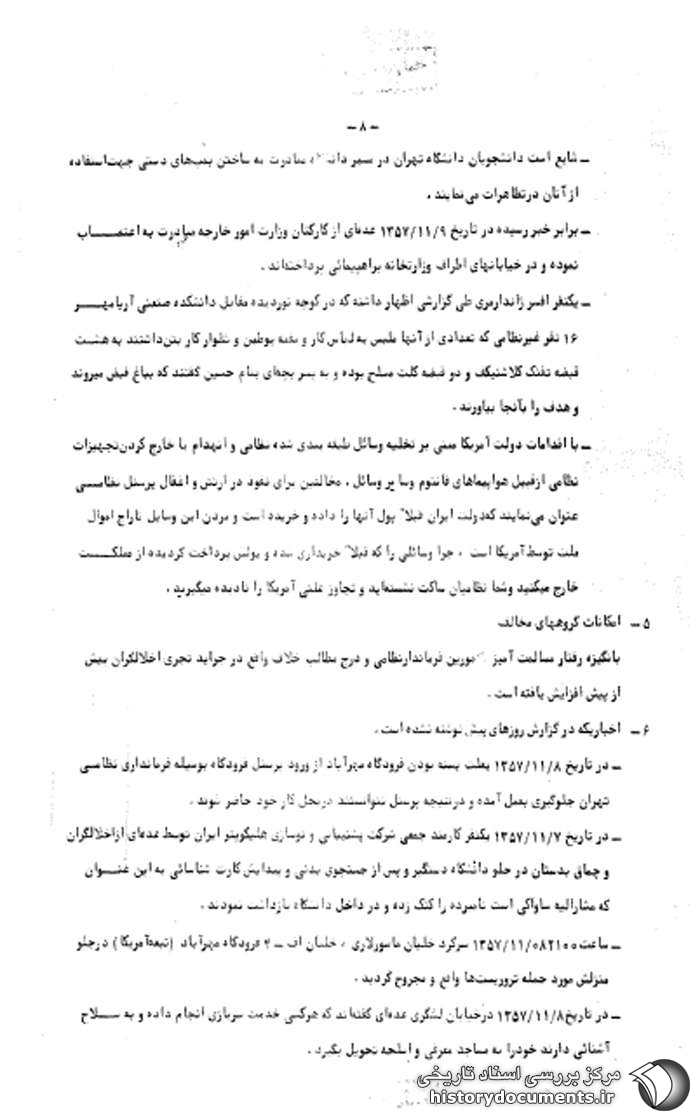 - ۸ -
ـ شایع است دانشجویان دانشگاه تهران در سیر مبادرت به ساختن بمب‌های دستی جهت استفاده
از آنان در تظاهرات می‌نمایند .
ـ برابر خبر رسیده در تاریخ ۱۳۵۷/۱۱/۹ عده‌ای از کارکنان وزارت امور خارجه مبادرت به اعتصـــــاب
نموده و در خیابانهای اطراف وزارتخانه براهپیمائی پرداخته‌اند .
ـ یکنفر افسر ژاندارمری طی گزارشی اظهار داشته که در کوچه نوردیده مقابل دانشکده صنعتی آریامهـــر
۱۶ نفر غیرنظامی که تعدادی از آنها ملبس به لباس کار و بقیه پوطین و شلوار کار بتن داشتند به هشت
قبضه تفنگ کلاشنیکف و دو قبضه کلت مسلح بوده و به پسر بچه‌ای بنام حسین گفتند که بباغ فیض میروند
و هدف را بآنجا بیاورند .
ـ با اقدامات دولت آمریکا مبنی بر تخلیه وسائل طبقه بندی شده نظامی و انهدام یا خارج کردن تجهیزات
نظامی ازقبیل هواپیماهای فانتوم وسایر وسائل ، مخالفین برای نفوذ در ارتش و اغفال پرسنل نظامـــی
عنوان می‌نمایند که‌دولت ایران قبلاً پول آنها را داده و خریده است و بردن این وسایل تاراج اموال
ملت توسط آمریکا است ، چرا وسائلی را که قبلاً خریداری شده و پولش پرداخت گردیده از مملکـــت
خارج میکنید وشما نظامیان ساکت نشسته‌اید و تجاوز علنی آمریکا را نادیده میگیرید .
۵ ـ امکانات گروههای مخالف
بانگیزه رفتار مسالمت آمیز مامورین فرماندارنظامی و درج مطالب خلاف واقع در جراید تجری اخلالگران بیش
از پیش افزایش یافته است .
۶ ـ اخباریکه در گزارش روزهای پیش نوشته نشده است .
ـ در تاریخ ۱۳۵۷/۱۱/۸ بعلت بسته بودن فرودگاه مهرآباد از ورود پرسنل فرودگاه بوسیله فرمانداری نظامـــی
تهران جلوگیری بعمل آمده و درنتیجه پرسنل نتوانستند درمحل کار خود حاضر شوند .
ـ در تاریخ ۱۳۵۷/۱۱/۷ یکنفر کارمند جمعی شرکت پشتیبانی و نوسازی هلیکوپتر ایران توسط عده‌ای ازاخلالگران
و چماق بدستان در جلو دانشگاه دستگیر و پس از جستجوی بدنی و پیدایش کارت شناسائی به این عنـــوان
که مشارالیه ساواکی است نامبرده را کتک زده و در داخل دانشگاه بازداشت نمودند .
ـ ساعت ۱۳۵۷/۱۱/۰۸۲۱۰۰ سرگرد خلبان ، خلبان اف ـ ۴ فرودگاه مهرآباد (تبعه‌آمریکا) درجلو
منزلش مورد حمله تروریست‌ها واقع و مجروح گردید .
ـ در تاریخ ۱۳۵۷/۱۱/۸ درخیابان لشگری عده‌ای گفته‌اند که هرکسی خدمت سربازی انجام داده و به ســـلاح
آشنائی دارند خودرا به مساجد معرفی و اسلحه تحویل بگیرد .
مرکز بررسی اسناد تاریخی
historydocuments.ir